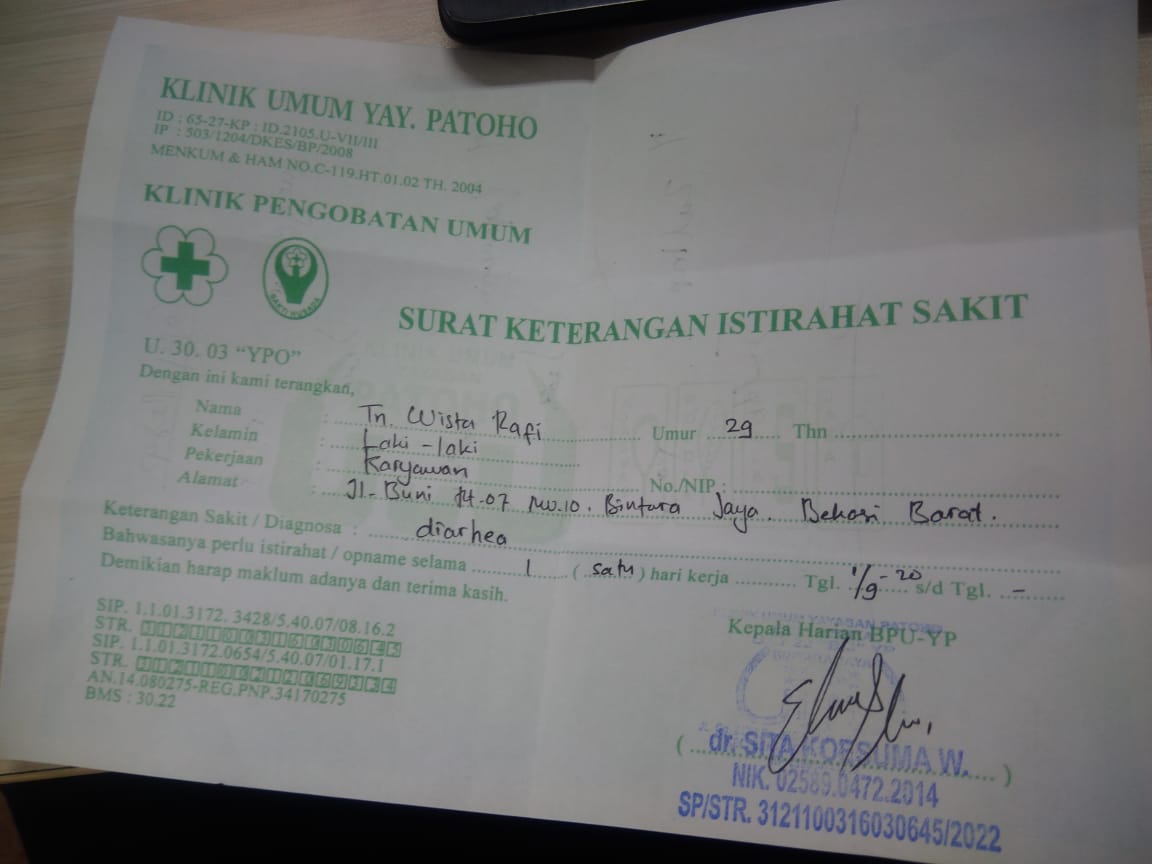 KLINIK UMUM YAY. PATOHO
ID : 65-27-KP : ID.2105.U-VII/III
IP : 503/1204/DKES/BP/2008
MENKUM & HAM NO.C-119.HT.01.02 TH. 2004
KLINIK PENGOBATAN UMUM
BAKTI HUSADA
SURAT KETERANGAN ISTIRAHAT SAKIT
U. 30. 03 “YPO”
Dengan ini kami terangkan,
Nama : Tn. Wista Rafi Umur 29 Thn
Kelamin : Laki-laki
Pekerjaan : Karyawan No./NIP :
Alamat : Jl. Buni Rt.07 Rw.10. Bintara Jaya. Bekasi Barat.
Keterangan Sakit / Diagnosa : diarhea
Bahwasanya perlu istirahat / opname selama 1 (satu) hari kerja Tgl. 1/9-20 s/d Tgl. -
Demikian harap maklum adanya dan terima kasih.
SIP. 1.1.01.3172. 3428/5.40.07/08.16.2
STR. 3121100316030645
SIP. 1.1.01.3172.0654/5.40.07/01.17.1
STR.
AN.14.080275-REG.PNP.34170275
BMS : 30.22
Kepala Harian BPU-YP
(dr. SITA KORSUMA W.)
NIK. 02589.0472.2014
SP/STR. 3121100316030645/2022